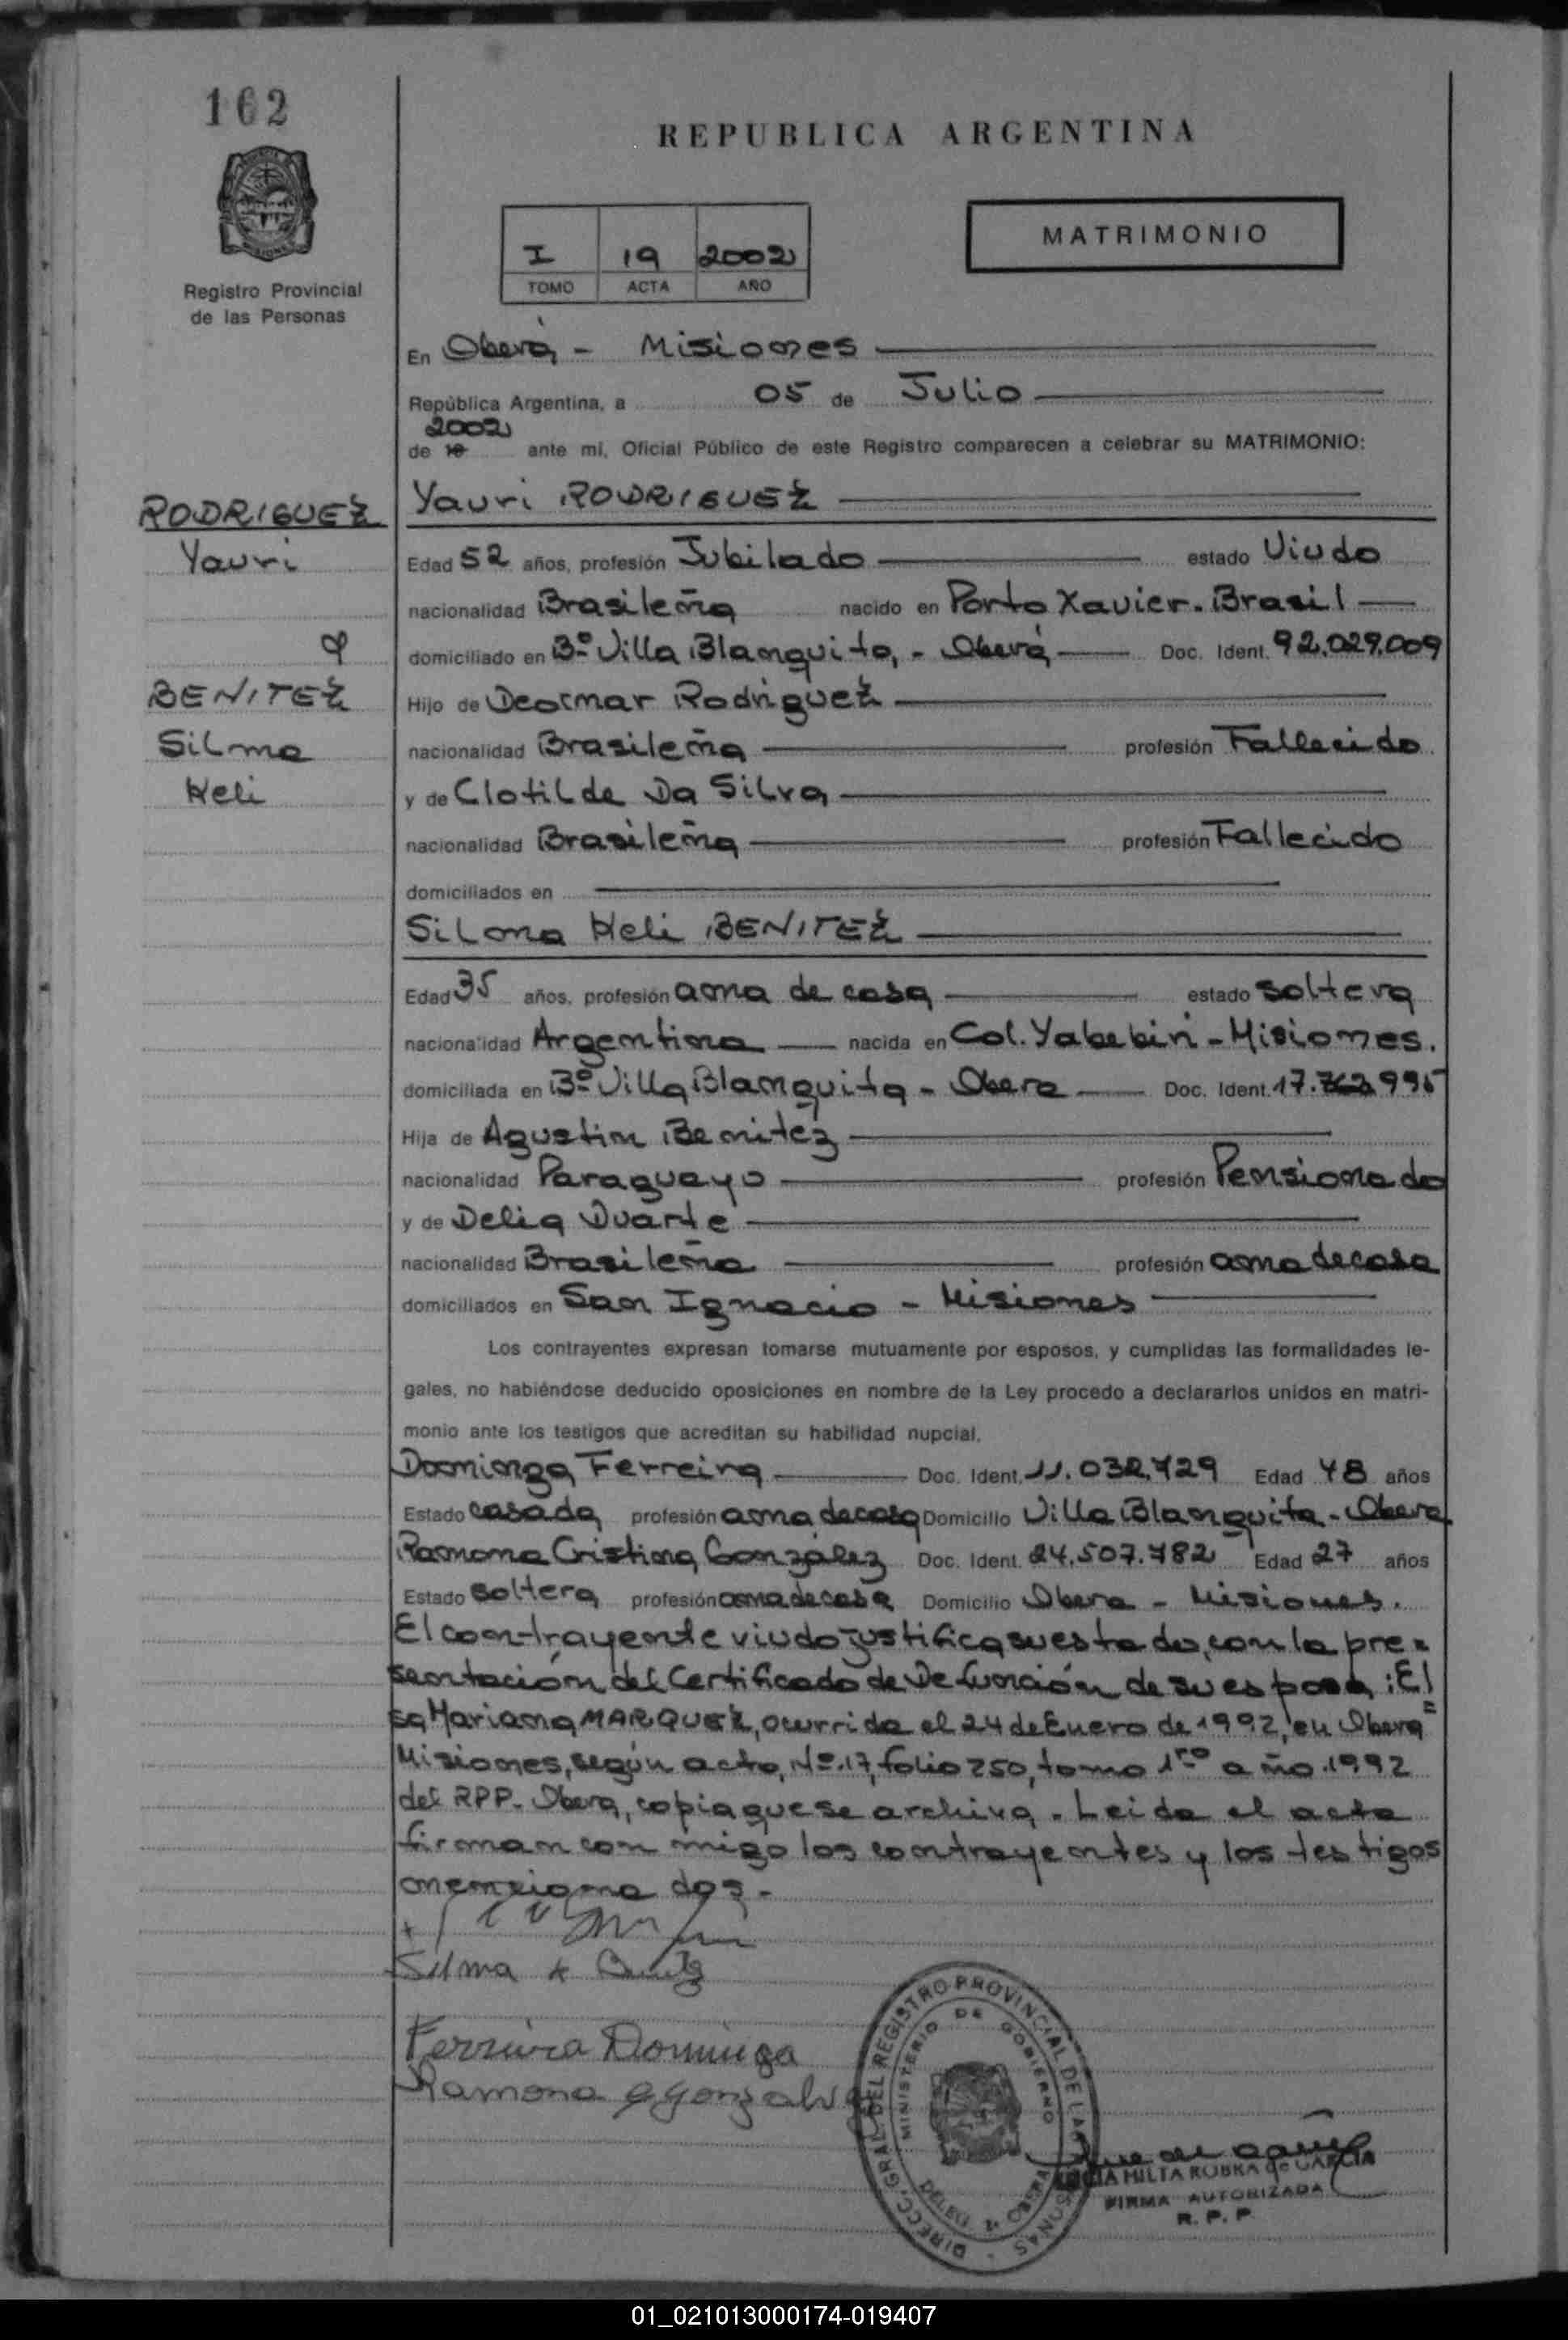 162
REPUBLICA ARGENTINA
MATRIMONIO
I 19 2002
TOMO ACTA AÑO
Registro Provincial
de las Personas
En Oberá - Misiones
República Argentina, a 05 de Julio
2002
de 19 ante mi, Oficial Público de este Registro comparecen a celebrar su MATRIMONIO:
RODRIGUEZ
Yauri
y
BENITEZ
Silma
Heli
Yauri RODRIGUEZ
Edad 52 años, profesión Jubilado estado Viudo
nacionalidad Brasileña nacido en Porto Xavier. Brasil
domiciliado en Bº Villa Blanquita, - Oberá Doc. Ident. 92.029.009
Hijo de Deocmar Rodriguez
nacionalidad Brasileña profesión Fallecido
y de Clotilde Da Silva
nacionalidad Brasileña profesión Fallecido
domiciliados en
Silma Heli BENITEZ
Edad 35 años, profesión ama de casa estado soltera
nacionalidad Argentina nacida en Col. Yabebiri - Misiones.
domiciliada en Bº Villa Blanquita - Obera Doc. Ident. 17.762.995
Hija de Agustin Benitez
nacionalidad Paraguayo profesión Pensionado
y de Delia Duarte
nacionalidad Brasileña profesión ama de casa
domiciliados en San Ignacio - Misiones
Los contrayentes expresan tomarse mutuamente por esposos, y cumplidas las formalidades le-
gales, no habiéndose deducido oposiciones en nombre de la Ley procedo a declararlos unidos en matri-
monio ante los testigos que acreditan su habilidad nupcial.
Dominga Ferreira Doc. Ident. 11.032.429 Edad 48 años
Estado casada profesión ama de casa Domicilio Villa Blanquita - Obera
Ramona Cristina González Doc. Ident. 24.507.482 Edad 27 años
Estado soltera profesión ama de casa Domicilio Obera - Misiones.
El contrayente viudo justifica su estado, con la pre=
sentación del Certificado de Defunción de su esposa: El=
sa Mariana MARQUEZ, ocurrida el 24 de Enero de 1992, en Obera
Misiones, según acta, Nº 17, folio 250, tomo 1ro año 1992
del RPP. Obera, copia que se archiva. Leida el acta
firman con migo los contrayentes y los testigos
mencionados.
Silma H Benitez
Ferreira Dominga
Ramona C Gonzalez
DIRECC. GRAL. DEL REGISTRO PROVINCIAL DE LAS PERSONAS
MINISTERIO DE GOBIERNO
MILTA ROBKA de GARCIA
FIRMA AUTORIZADA
R. P. P.
01_021013000174-019407